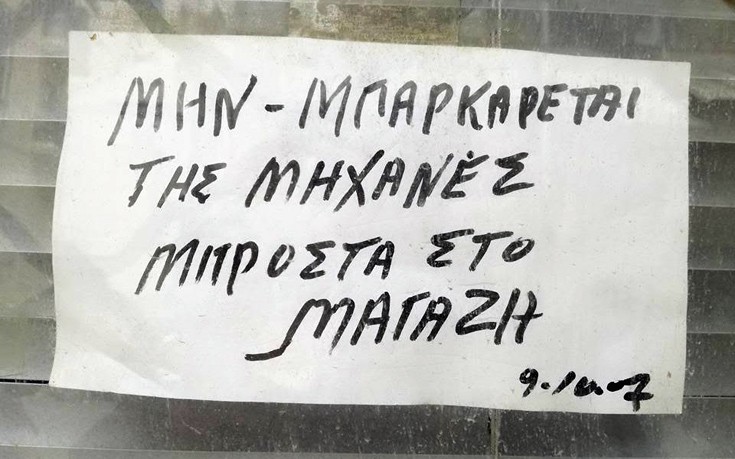 ΜΗΝ - ΜΠΑΡΚΑΡΕΤΑΙ
ΤΗΣ ΜΗΧΑΝΈΣ
ΜΠΡΟΣΤΑ ΣΤΟ
ΜΑΓΑΖΗ